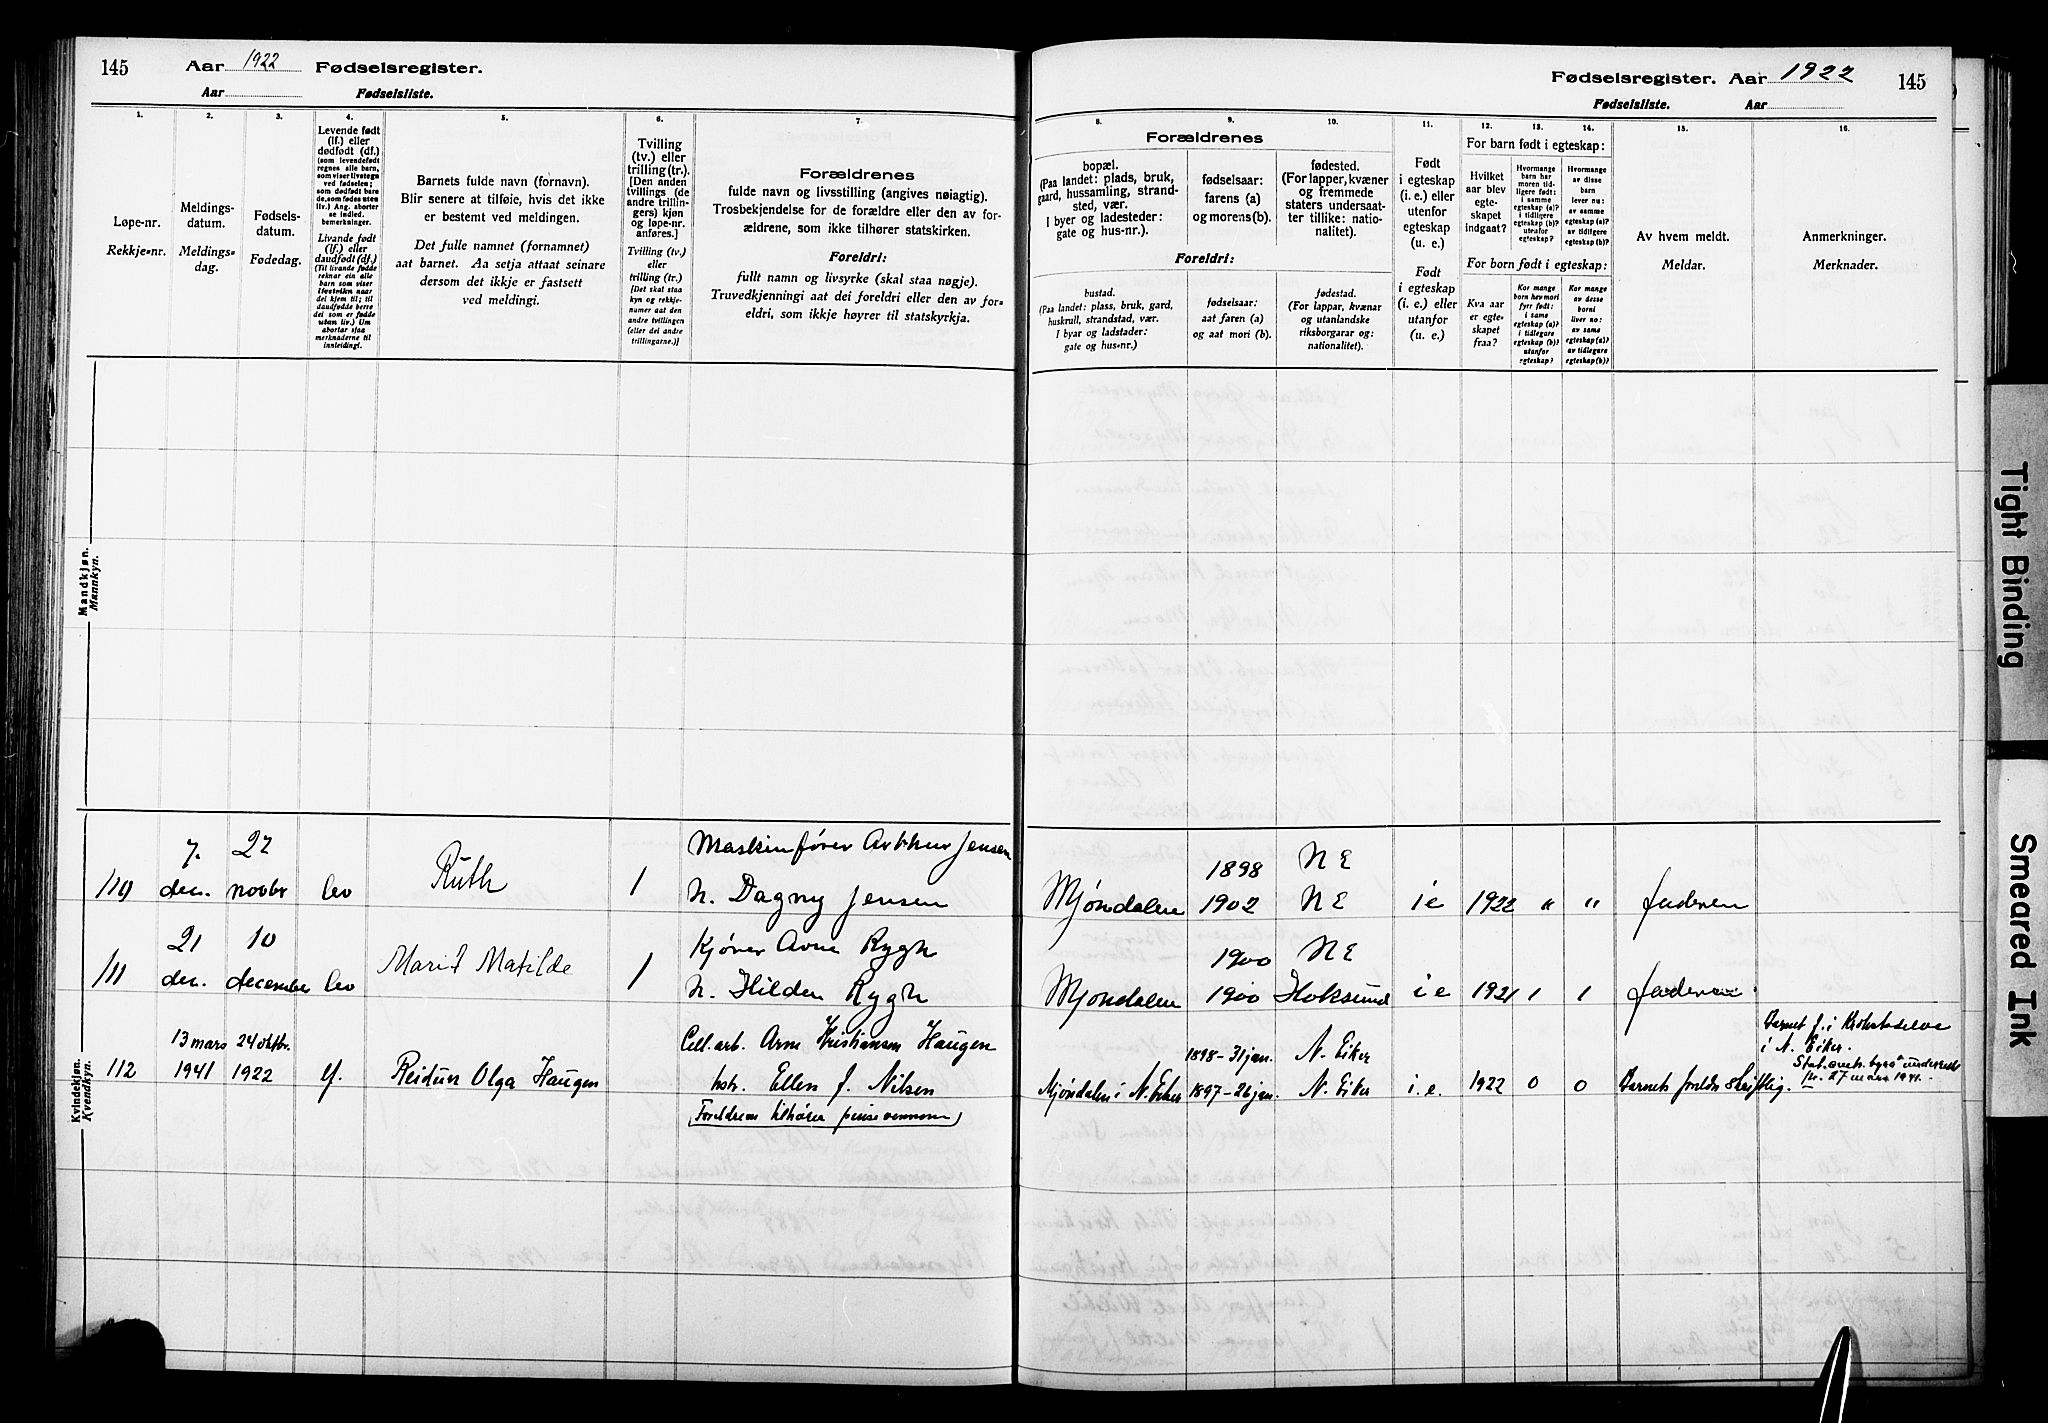 145 Aar 1922 Fødselsregister.
Aar Fødselsliste.
Fødselsregister. Aar 1922 145
Fødselsliste. Aar
1.
Løpe-nr.
Rekkje-nr.
2.
Meldings-
datum.
Meldings-
dag.
3.
Fødsels-
datum.
Fødedag.
4.
Levende født
(lf.) eller
dødfødt (df.)
(som levendefødt
regnes alle barn,
som viser livstegn
ved fødselen;
som dødfødt bare
de, som fødes uten
liv.) Ang. aborter
se indled.
bemerkninger.
Livande født
(lf.) eller
daudfødt (df.)
(Til livande fødde
reknar ein alle
born som viser
livsteikn naar
dei kjem til; til
daudfødde berre
dei som er fødde
utan liv.) Um
abortar sjaa
merknaderne til
innleiding).
5.
Barnets fulde navn (fornavn).
Blir senere at tilføie, hvis det ikke
er bestemt ved meldingen.
Det fulle namnet (fornamnet)
aat barnet. Aa setja attaat seinare
dersom det ikkje er fastsett
ved meldingi.
6.
Tvilling
(tv.) eller
trilling (tr.).
[Den anden
tvillings (de
andre trillin-
gers) kjøn
og løpe-nr.
anføres.]
Tvilling (tv.)
eller
trilling (tr.)
[Det skal staa
kyn og rekkje-
numer aat den
andre tvillingen
(eller dei andre
trillingarne.)]
7.
Forældrenes
fulde navn og livsstilling (angives nøiagtig).
Trosbekjendelse for de forældre eller den av for-
ældrene, som ikke tilhører statskirken.
Foreldri:
fullt namn og livsyrke (skal staa nøgje).
Truvedkjenningi aat dei foreldri eller den av for-
eldri, som ikkje høyrer til statskyrkja.
Forældrenes
8.
bopæl.
(Paa landet: plads, bruk,
gaard, hussamling, strand-
sted, vær.
I byer og ladesteder:
gate og hus-nr.).
9.
fødselsaar:
farens (a)
og morens (b).
10.
fødested.
(For lapper, kvæner
og fremmede
staters undersaat-
ter tillike: natio-
nalitet).
Foreldri:
bustad.
(Paa landet: plass, bruk, gard,
huskrull, strandstad, vær.
I byar og ladstader:
gate og hus-nr.)
fødselsaar:
aat faren (a)
og aat mori (b).
fødestad.
(For lappar, kvænar
og utanlandske
riksborgarar og:
nationalitet).
11.
Født
i egteskap
(i. e.) eller
utenfor
egteskap
(u. e.)
Født
i egteskap
(i. e.) eller
utanfor
egteskap
(u. e.)
12. 13. 14.
For barn født i egteskap:
Hvilket
aar blev
egte-
skapet
indgaat?
Hvormange
barn har
moren tid-
ligere født:
i samme
egteskap (a)?
i tidligere
egteskap (b)?
utenfor
egteskap?
Hvormange
av disse
barn
lever nu:
av samme
egteskap (a)?
av tidligere
egteskap (b)?
For born født i egteskap:
Kva aar
er egte-
skapet
fraa?
Kor mange
born hev mori
fyrr født:
i same
egteskap (a)?
i tidlegare
egteskap (b)?
utanfor
egteskap?
Kor mange
av desse
borni
liver no:
av same
egteskap (a)?
av tidlegare
egteskap (b)?
15.
Av hvem meldt.
Meldar.
16.
Anmerkninger.
Merknader.
Mandkjøn.
Mannkyn.
Kvindekjøn.
Kvendkyn.
110 7. dec. 27 novbr lev Ruth 1 Maskinfører Arthur Jensen
h. Dagny Jensen Mjøndalen 1898 1902 N E N E i e 1922 " " Faderen
111 21 dec. 10 december lev Marit Matilde 1 Kjører Arne Rygh
h. Hilden Rygh Mjøndalen 1900 1900 N E Hoksund i e 1921 1 1 Faderen
112 13 mars 1941 24 oktbr. 1922 lf. Reidun Olga Haugen Cell.arb. Arne Kristiansen Haugen
hstr. Ellen f. Nilsen Mjøndalen i N. Eiker 1898 - 31 jan. 1897 - 26 jan. N. Eiker N. Eiker i. e. 1922 0 0 Barnets foreldre skriftlig.
(Foreldrene tilhører pinsevennene)
Barnet f. i Krokstadelva
i N. Eiker.
Stat. sent. byrå underrettet
27 mars 1941.
Tight Binding
Smeared Ink